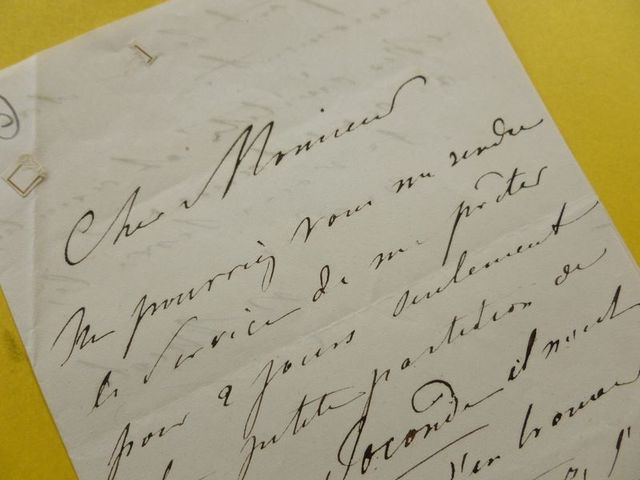 Cher Monsieur
Ne pourriez vous me rendre
le service de me prêter
pour 2 jours seulement
la petite partition de
Joconde il m'est
d'en trouver